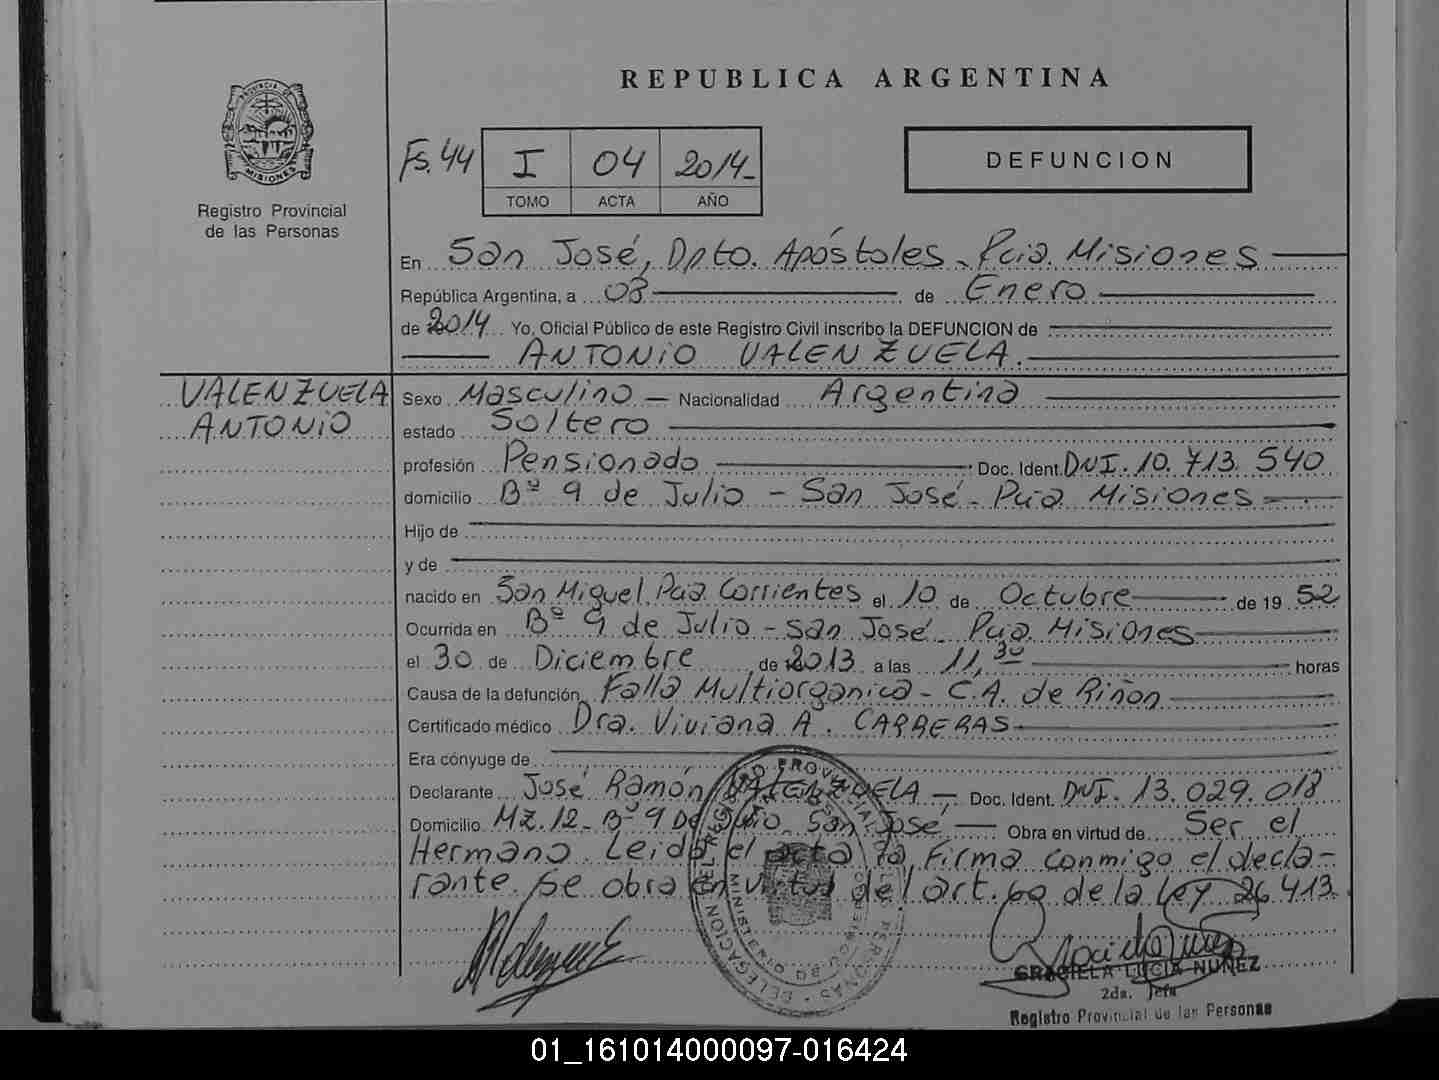 REPUBLICA ARGENTINA
PROVINCIA DE
MISIONES
Registro Provincial
de las Personas
Fs. 44
I 04 2014
TOMO ACTA AÑO
DEFUNCION
En San José, Dpto. Apóstoles - Pcia. Misiones
República Argentina, a 03 de Enero
de 2014 Yo, Oficial Público de este Registro Civil inscribo la DEFUNCION de
ANTONIO VALENZUELA.
VALENZUELA
ANTONIO
Sexo Masculino - Nacionalidad Argentina
estado Soltero
profesión Pensionado Doc. Ident. DNI. 10.713.540
domicilio Bº 9 de Julio - San José - Pcia Misiones
Hijo de
y de
nacido en San Miguel Pcia. Corrientes el 10 de Octubre de 19 52
Ocurrida en Bº 9 de Julio - San José - Pcia. Misiones
el 30 de Diciembre de 2013 a las 11,30 horas
Causa de la defunción Falla Multiorganica - C.A. de Riñon
Certificado médico Dra. Viviana A. CARRERAS
Era cónyuge de
Declarante José Ramón VALENZUELA - Doc. Ident. DNI. 13.029.018
Domicilio MZ. 12 - Bº 9 De Julio San José - Obra en virtud de Ser el
Hermano. Leida el acta la Firma conmigo el decla-
rante. Se obra en virtud del art. 60 de la Ley 26.413.
GRACIELA LUCIA NUÑEZ
2da. Jefa
Registro Provincial de las Personas
01_161014000097-016424